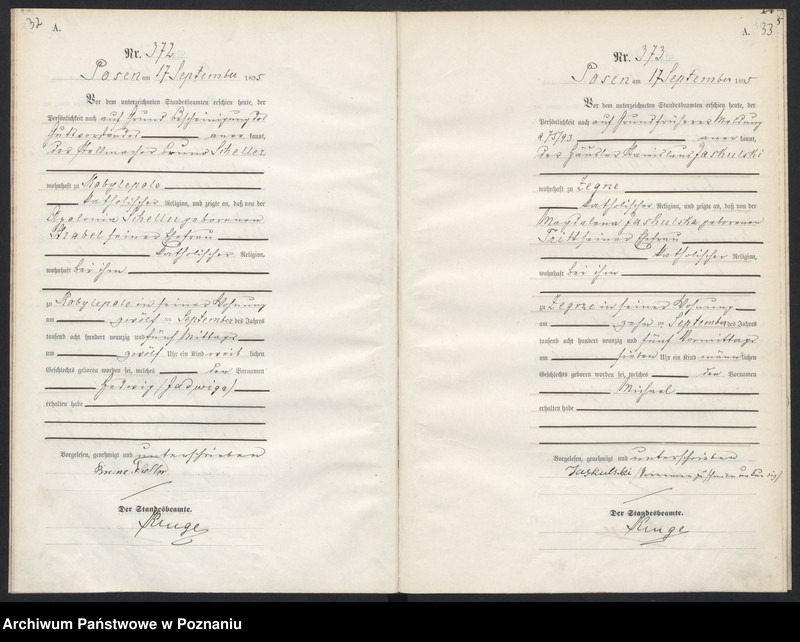 32
A.
Nr. 372
Posen am 17 September 1895
Vor dem unterzeichneten Standesbeamten erschien heute, der
Persönlichkeit nach auf Grund Bescheinigung des
Gutsvorstandes anerkannt,
des Stellmachers Bruno Scheller
wohnhaft zu Kobylepole
katholischer Religion, und zeigte an, daß von der
Apolonia Scheller geborenen
Strabel seiner Ehefrau
katholischer Religion,
wohnhaft bei ihm
zu Kobylepole in seiner Wohnung
am zwölf ten September des Jahres
tausend acht hundert neunzig und fünf Mittags
um zwölf Uhr ein Kind weib lichen
Geschlechts geboren worden sei, welches den Vornamen
Hedwig (Jadwiga)
erhalten habe
Vorgelesen, genehmigt und unterschrieben
Bruno Scheller
Der Standesbeamte.
Kruge
A. 33
Nr. 373
Posen am 17 September 1895
Vor dem unterzeichneten Standesbeamten erschien heute, der
Persönlichkeit nach auf Grund früherer Meldung
anerkannt,
des Stanislaus Jaskulski
wohnhaft zu Zegrze
katholischer Religion, und zeigte an, daß von der
Magdalena Jaskulska geborenen
seiner Ehefrau
katholischer Religion,
wohnhaft bei ihm
zu Zegrze in seiner Wohnung
am zehn ten September des Jahres
tausend acht hundert neunzig und fünf Vormittags
um sieben Uhr ein Kind männ lichen
Geschlechts geboren worden sei, welches den Vornamen
Michael
erhalten habe
Vorgelesen, genehmigt und unterschrieben
Jaskulski
Der Standesbeamte.
Kruge
Archiwum Państwowe w Poznaniu